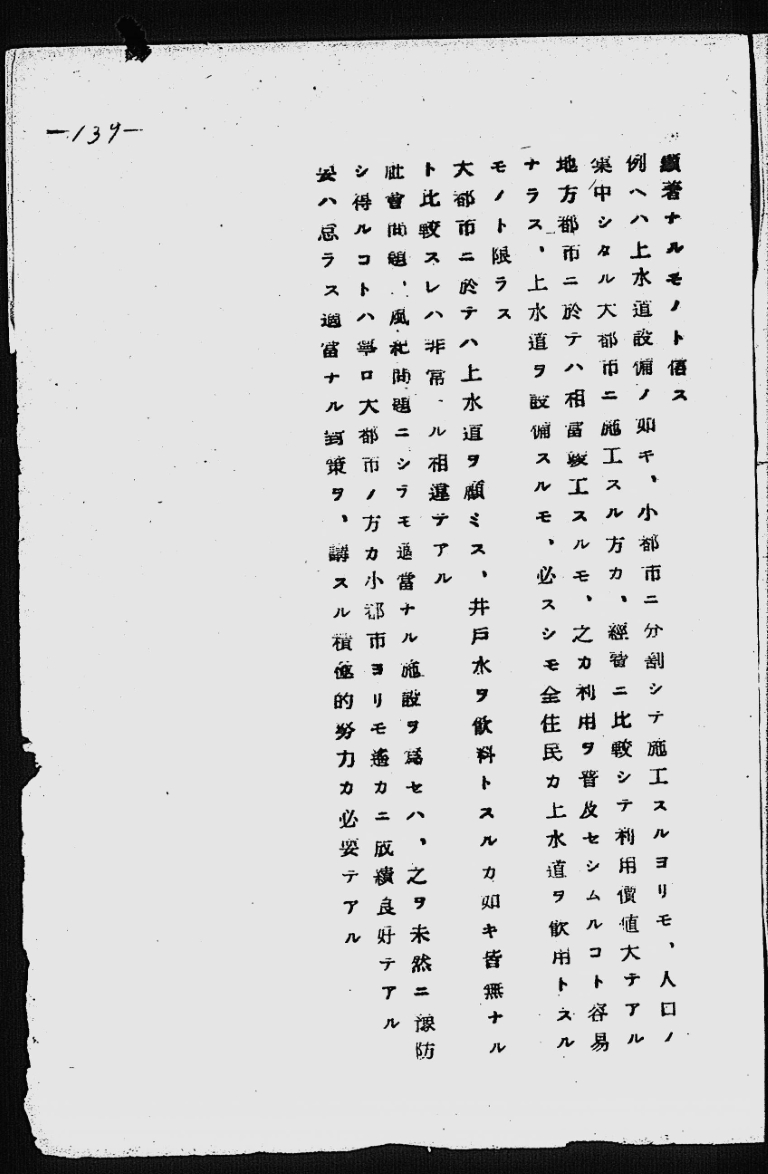 —139—
顯著ナルモノト信ス
例ヘハ上水道設備ノ如キ、小都市ニ分割シテ施工スルヨリモ、人口ノ
集中シタル大都市ニ施工スル方カ、經費ニ比較シテ利用價値大テアル
地方都市ニ於テハ相當竣工スルモ、之カ利用ヲ普及セシムルコト容易
ナラス、上水道ヲ設備スルモ、必スシモ全住民カ上水道ヲ飮用トスル
モノト限ラス
大都市ニ於テハ上水道ヲ顧ミス、井戸水ヲ飮料トスルカ如キ皆無ナル
ト比較スレハ非常ル相違テアル
社會問題、風紀問題ニシラモ適當ナル施設ヲ爲セハ、之ヲ未然ニ豫防
シ得ルコトハ寧ロ大都市ノ方カ小都市ヨリモ遙カニ成績良好テアル
要ハ怠ラス適當ナル對策ヲ、講スル積極的努力カ必要テアル